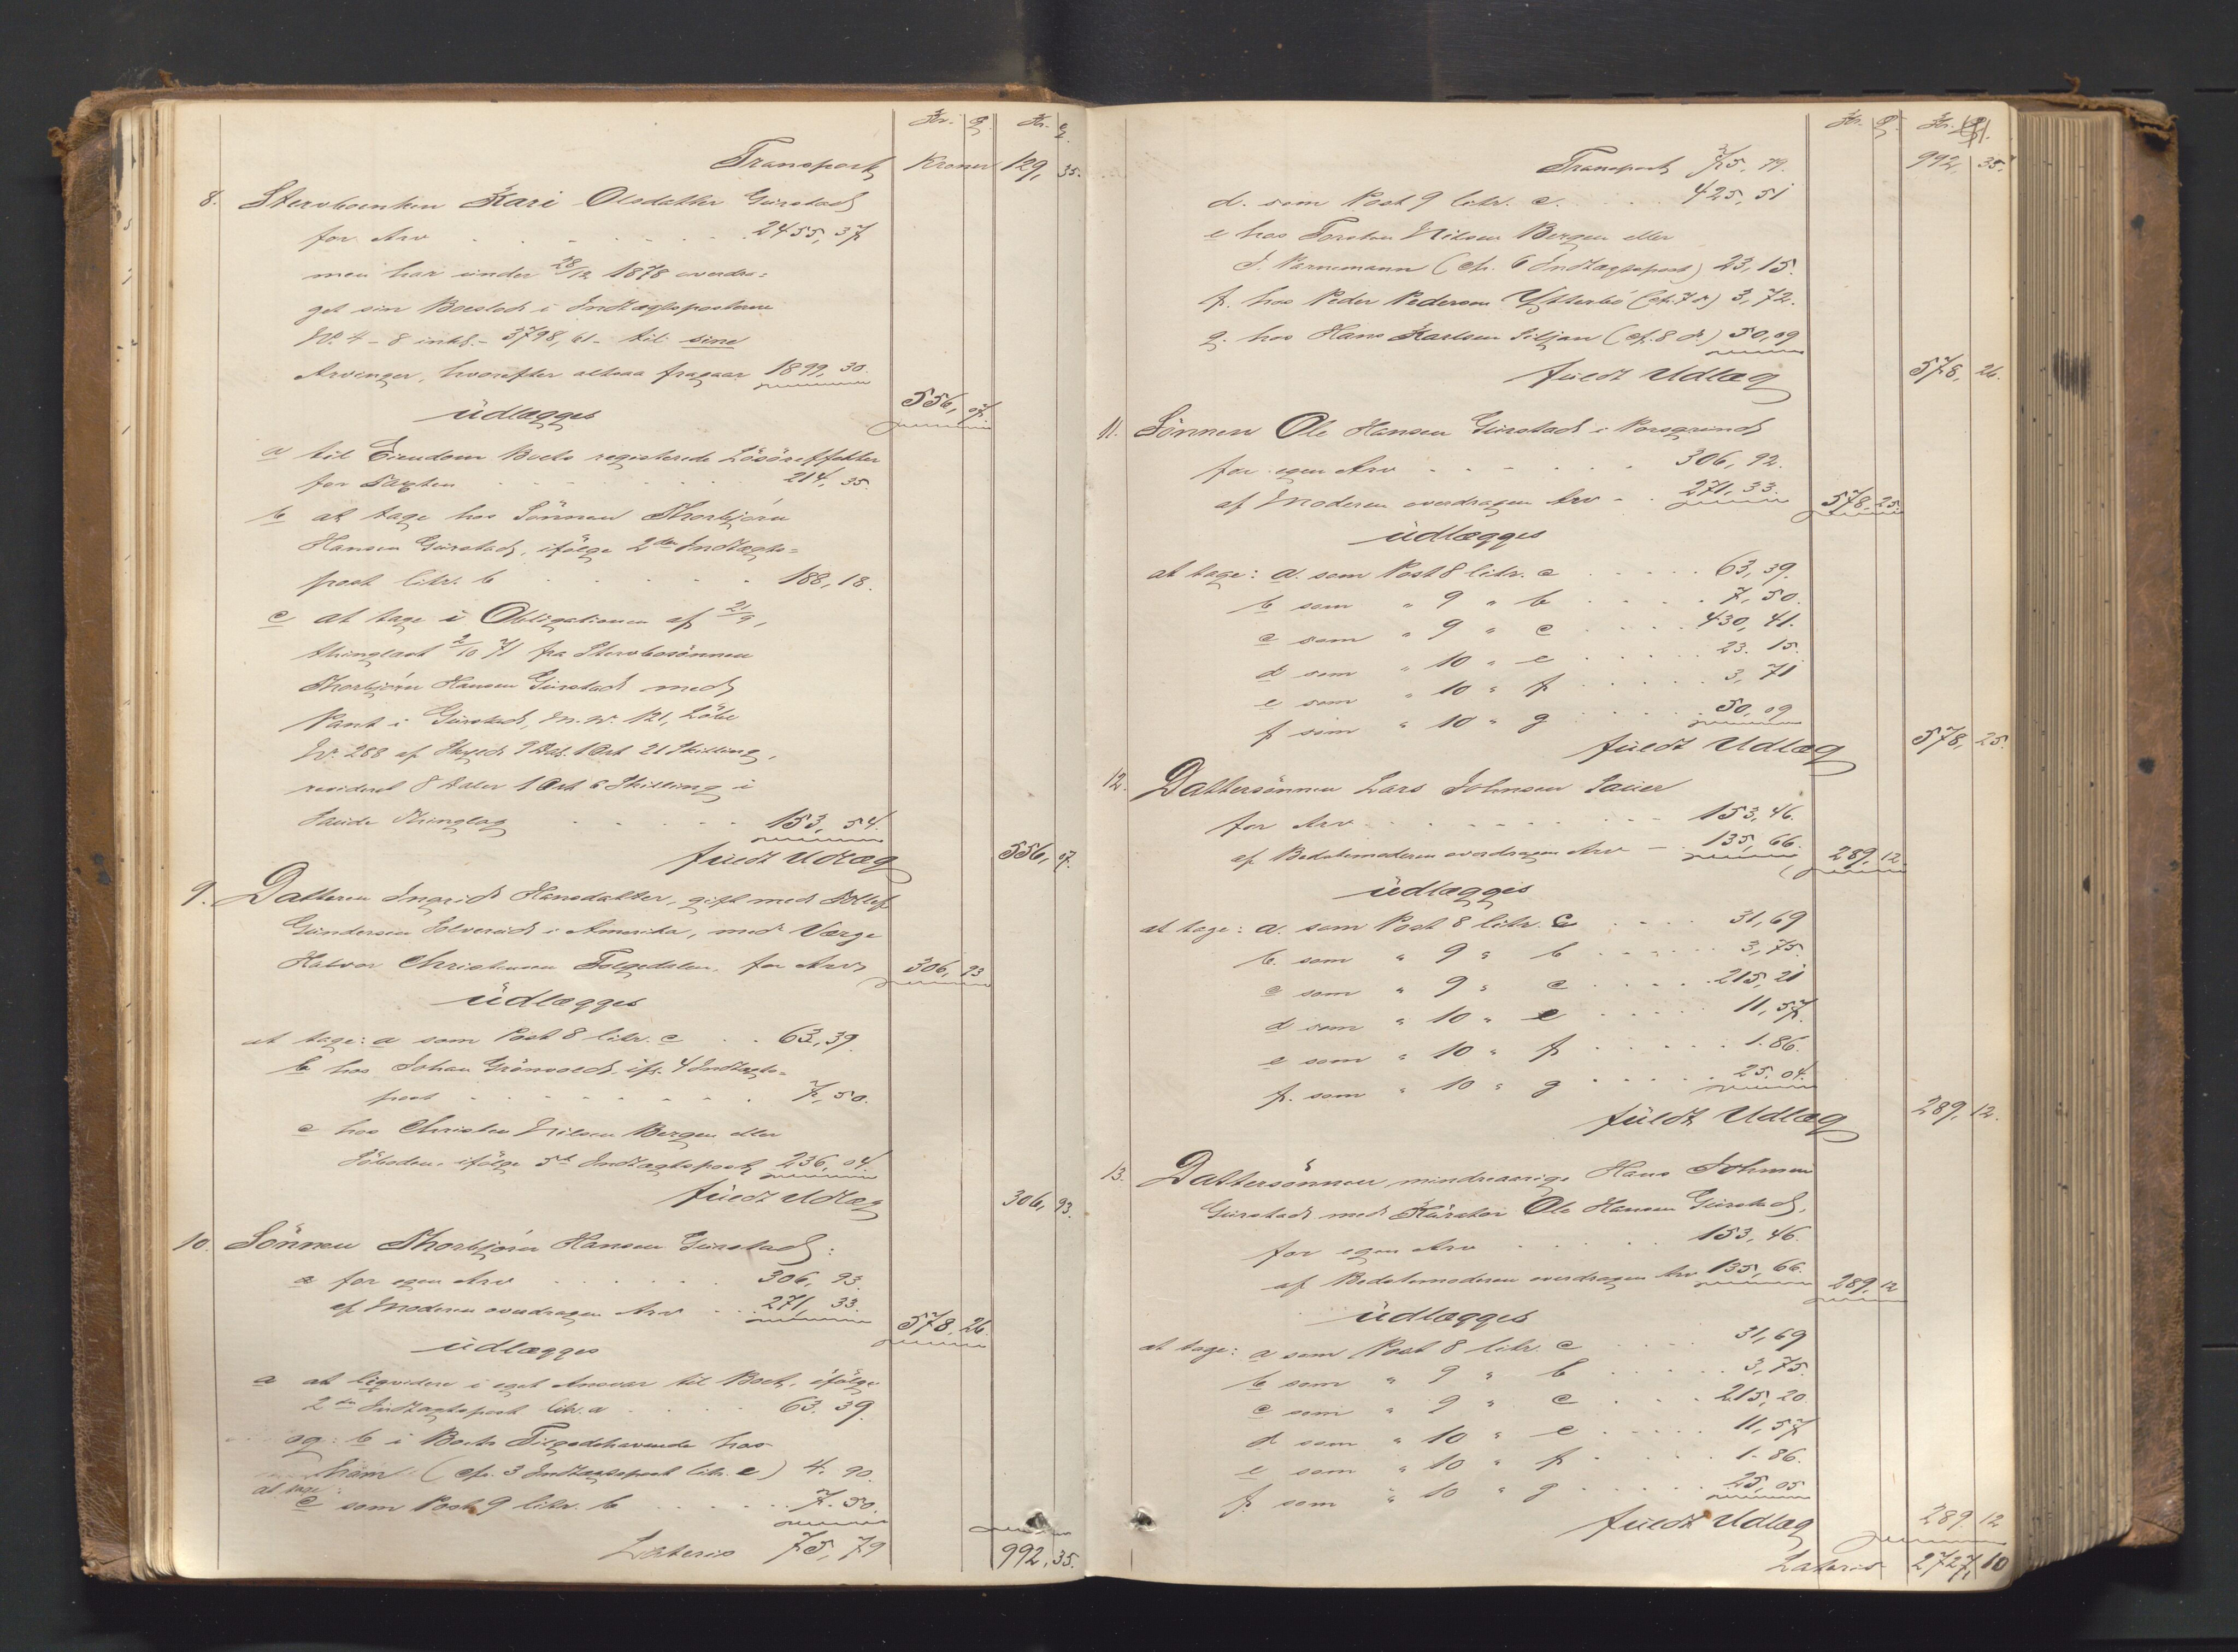 Kr. Ø. Kr. Ø.
Transport Kroner 129, 35.
8. Stervboenken Kari Olsdatter Gurstad
for Arv 2455,37
men har under 28/12 1878 overdra=
get sin Boeslod i Indtægtsposterne
No 4 - 8 inkl. - 3798,61 - til sine
Arvinger, hvorefter altsaa fragaar 1899,30.
556,07.
udlægges
a til Eiendom Boets registerede Lösöreffekter
for Taxten 214,35.
b at tage hos Sönnen Thorbjörn
Hansen Gurstad, ifölge 2den Indtægts=
post litr. b 188,18.
c at tage i Obligationen af 21/9,
thinglæst 2/10 71 fra Stervbosönnen
Thorbjörn Hansen Gurstad med
Pant i Gurstad, M. No. 121, Löbe
No. 288 af Skyld 7 Dal. 1 Ort 21 Skilling,
revideret 8 Daler 1 Ort 6 Skilling i
Saude Thinglag 153,54.
fuldt Udlæg 556,07.
9. Datteren Ingrid Hansdatter, gift med
Gundersen i Amerika, med Værge
Halvor Christensen for Arv 306,93
udlægges
at tage: a som Post 8 litr. c 63,39.
b hos Johan Grönvold, ifr. 4 Indtægts=
post 7,50.
c hos Christen Nilsen Bergen eller
ifölge 5te Indtægtspost 236,04.
fuldt Udlæg 306,93.
10. Sönnen Thorbjörn Hansen Gurstad:
a for egen Arv 306,93.
af Moderen overdragen Arv 271,33.
578,26.
udlægges
a at liqvidere i eget Ansvar til Boet, ifölge
2den Indtægtspost litr. a 63.39.
og: b i Boets Tilgodehavende hos
ham (cfr. 3 Indtægtspost litr. c) 4.90.
at tage:
c som Post 9 litr. b 7.50.
Lateris 75,79 992,35.
Kr. Ø. Kr. Ø.
Transport 75.79. 992, 35.
d. som Post 9 litr. c. 425,51
e hos Torsten Nilsen Bergen eller
J. (cfr. 6 Indtægtspost) 23,15.
f. hos Peder Pedersen Ytterbö (cf. 7 ") 3,72.
g. hos Hans Karlsen Siljan (cf. 8 d.) 50,09
fuldt Udlæg 578, 26.
11. Sönnen Ole Hansen Gurstad i Porsgrund
for egen Arv 306,92.
af Moderen overdragen Arv 271,33. 578,25.
udlægges
at tage: a. som Post 8 litr. c 63,39.
b som " 9 " b 7,50.
c som " 9 " c 430,41.
d som " 10 " e 23.15.
e som " 10 " f 3,71
f som " 10 " g 50,09
fuldt Udlæg 578,25.
12. Dattersönnen Lars Johnsen Sauer
for Arv 153,46.
af Bedstemoderen overdragen Arv 135,66. 289,12.
udlægges
at tage: a. som Post 8 litr. c 31,69
b. som " 9 " b 3,75.
c som " 9 " c 215,21
d som " 10 " e 11,57.
e som " 10 " f 1.86.
f. som " 10 " g 25.04.
fuldt Udlæg 289,12.
13. Dattersönnen mindreaarige Hans Johnsen
Gurstad med Kurator Ole Hansen Gurstad,
for egen Arv 153,46.
af Bedstemoderen overdragen Arv 135,66. 289,12
udlægges
at tage: a som Post 8 litr. c 31,69
b som " 9 " b 3,75.
c som " 9 " c 215,20
d som " 10 " e 11,57
e som " 10 " f 1.86.
f som " 10 " g 25,05
fuldt Udlæg 289.12
Lateris 2727,10